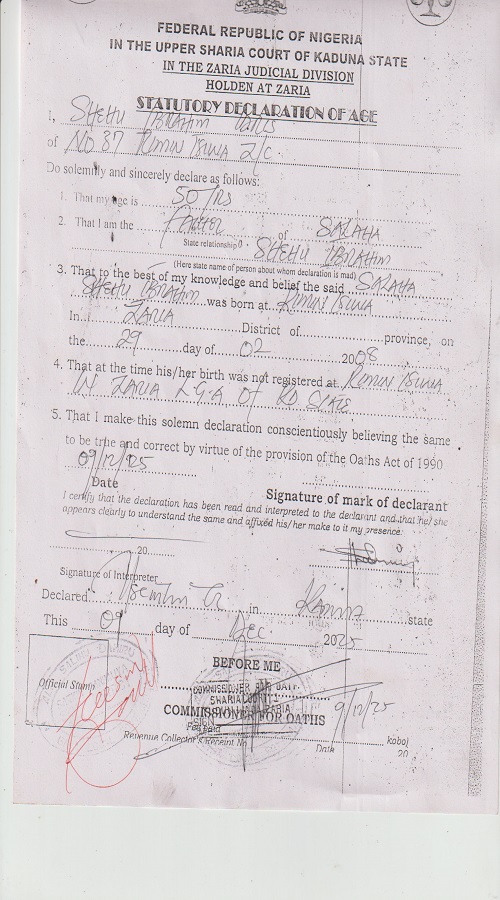 FEDERAL REPUBLIC OF NIGERIA
IN THE UPPER SHARIA COURT OF KADUNA STATE
IN THE ZARIA JUDICIAL DIVISION
HOLDEN AT ZARIA
STATUTORY DECLARATION OF AGE
I, SHEHU IBRAHIM
of NO 37 RIMIN TSIWA Z/C
Do solemnly and sincerely declare as follows:
1. That my age is 50 YRS
2. That I am the FATHER of SALAHA
State relationship SHEHU IBRAHIM
(Here state name of person about whom declaration is mad)
3. That to the best of my knowledge and belief the said SALAHA
SHEHU IBRAHIM was born at RIMIN TSIWA
In ZARIA District of province, on
the 29 day of 02 2008
4. That at the time his/her birth was not registered at RIMIN TSIWA
IN ZARIA L.G.A OF KD STATE
5. That I make this solemn declaration conscientiously believing the same
to be true and correct by virtue of the provision of the Oaths Act of 1990
09/12/25
Date
Signature of mark of declarant
I certify that the declaration has been read and interpreted to the declarant and that he/she
appears clearly to understand the same and affixed his/her make to it my presence.
20
Signature of Interpreter
Declared in state
This 09 day of Dec 2025
BEFORE ME
Official Stamp
COMMISSIONER FOR OATH
SHARIA COURT
ZARIA
COMMISSIONER FOR OATHS
9/12/25
Fee paid kobo
Revenue Collector's Receipt No Date 20